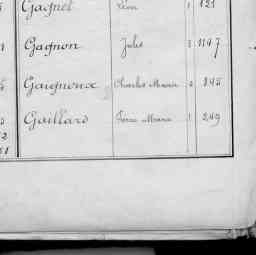 Gagnet Léon 1 121
Gagnon Jules 3 1147
Gaignoux Charles Marie 2 845
Gaillard Pierre Marie 1 249